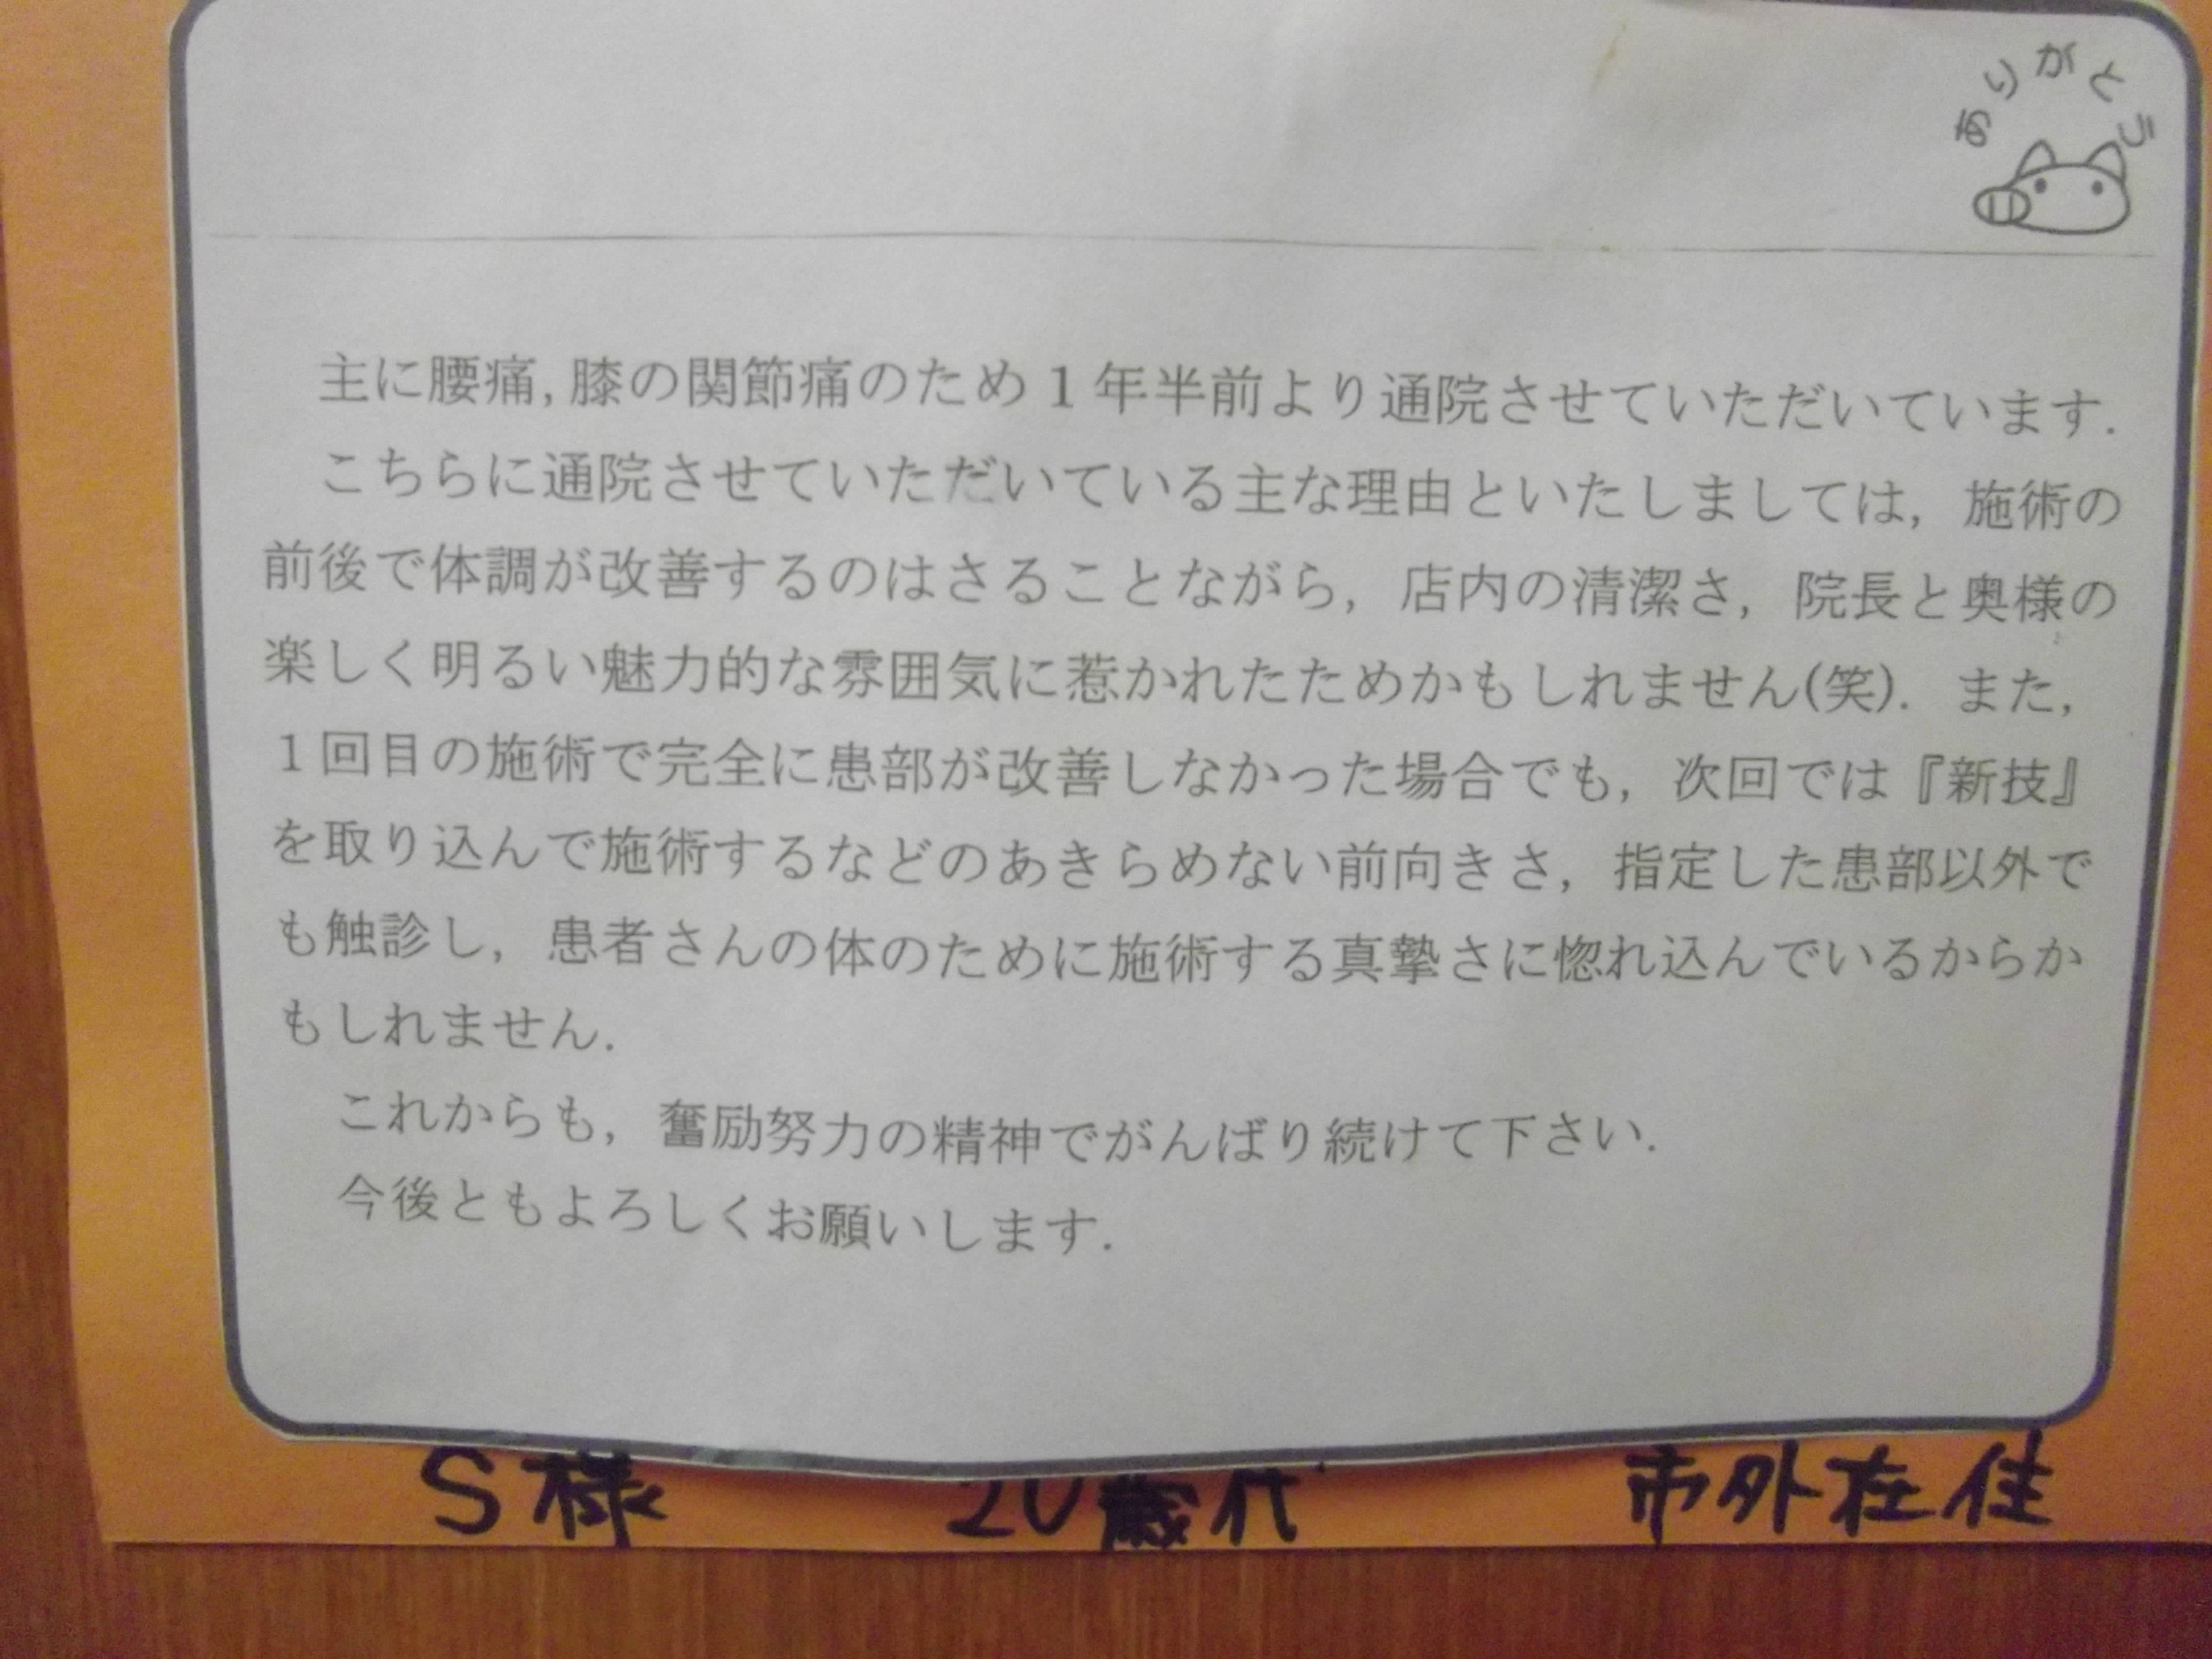 ありがとう
主に腰痛,膝の関節痛のため１年半前より通院させていただいています．
こちらに通院させていただいている主な理由といたしましては，施術の
前後で体調が改善するのはさることながら，店内の清潔さ，院長と奥様の
楽しく明るい魅力的な雰囲気に惹かれたためかもしれません(笑)．また，
１回目の施術で完全に患部が改善しなかった場合でも，次回では『新技』
を取り込んで施術するなどのあきらめない前向きさ，指定した患部以外で
も触診し，患者さんの体のために施術する真摯さに惚れ込んでいるからか
もしれません．
これからも，奮励努力の精神でがんばり続けて下さい．
今後ともよろしくお願いします．
S様 20歳代 市外在住